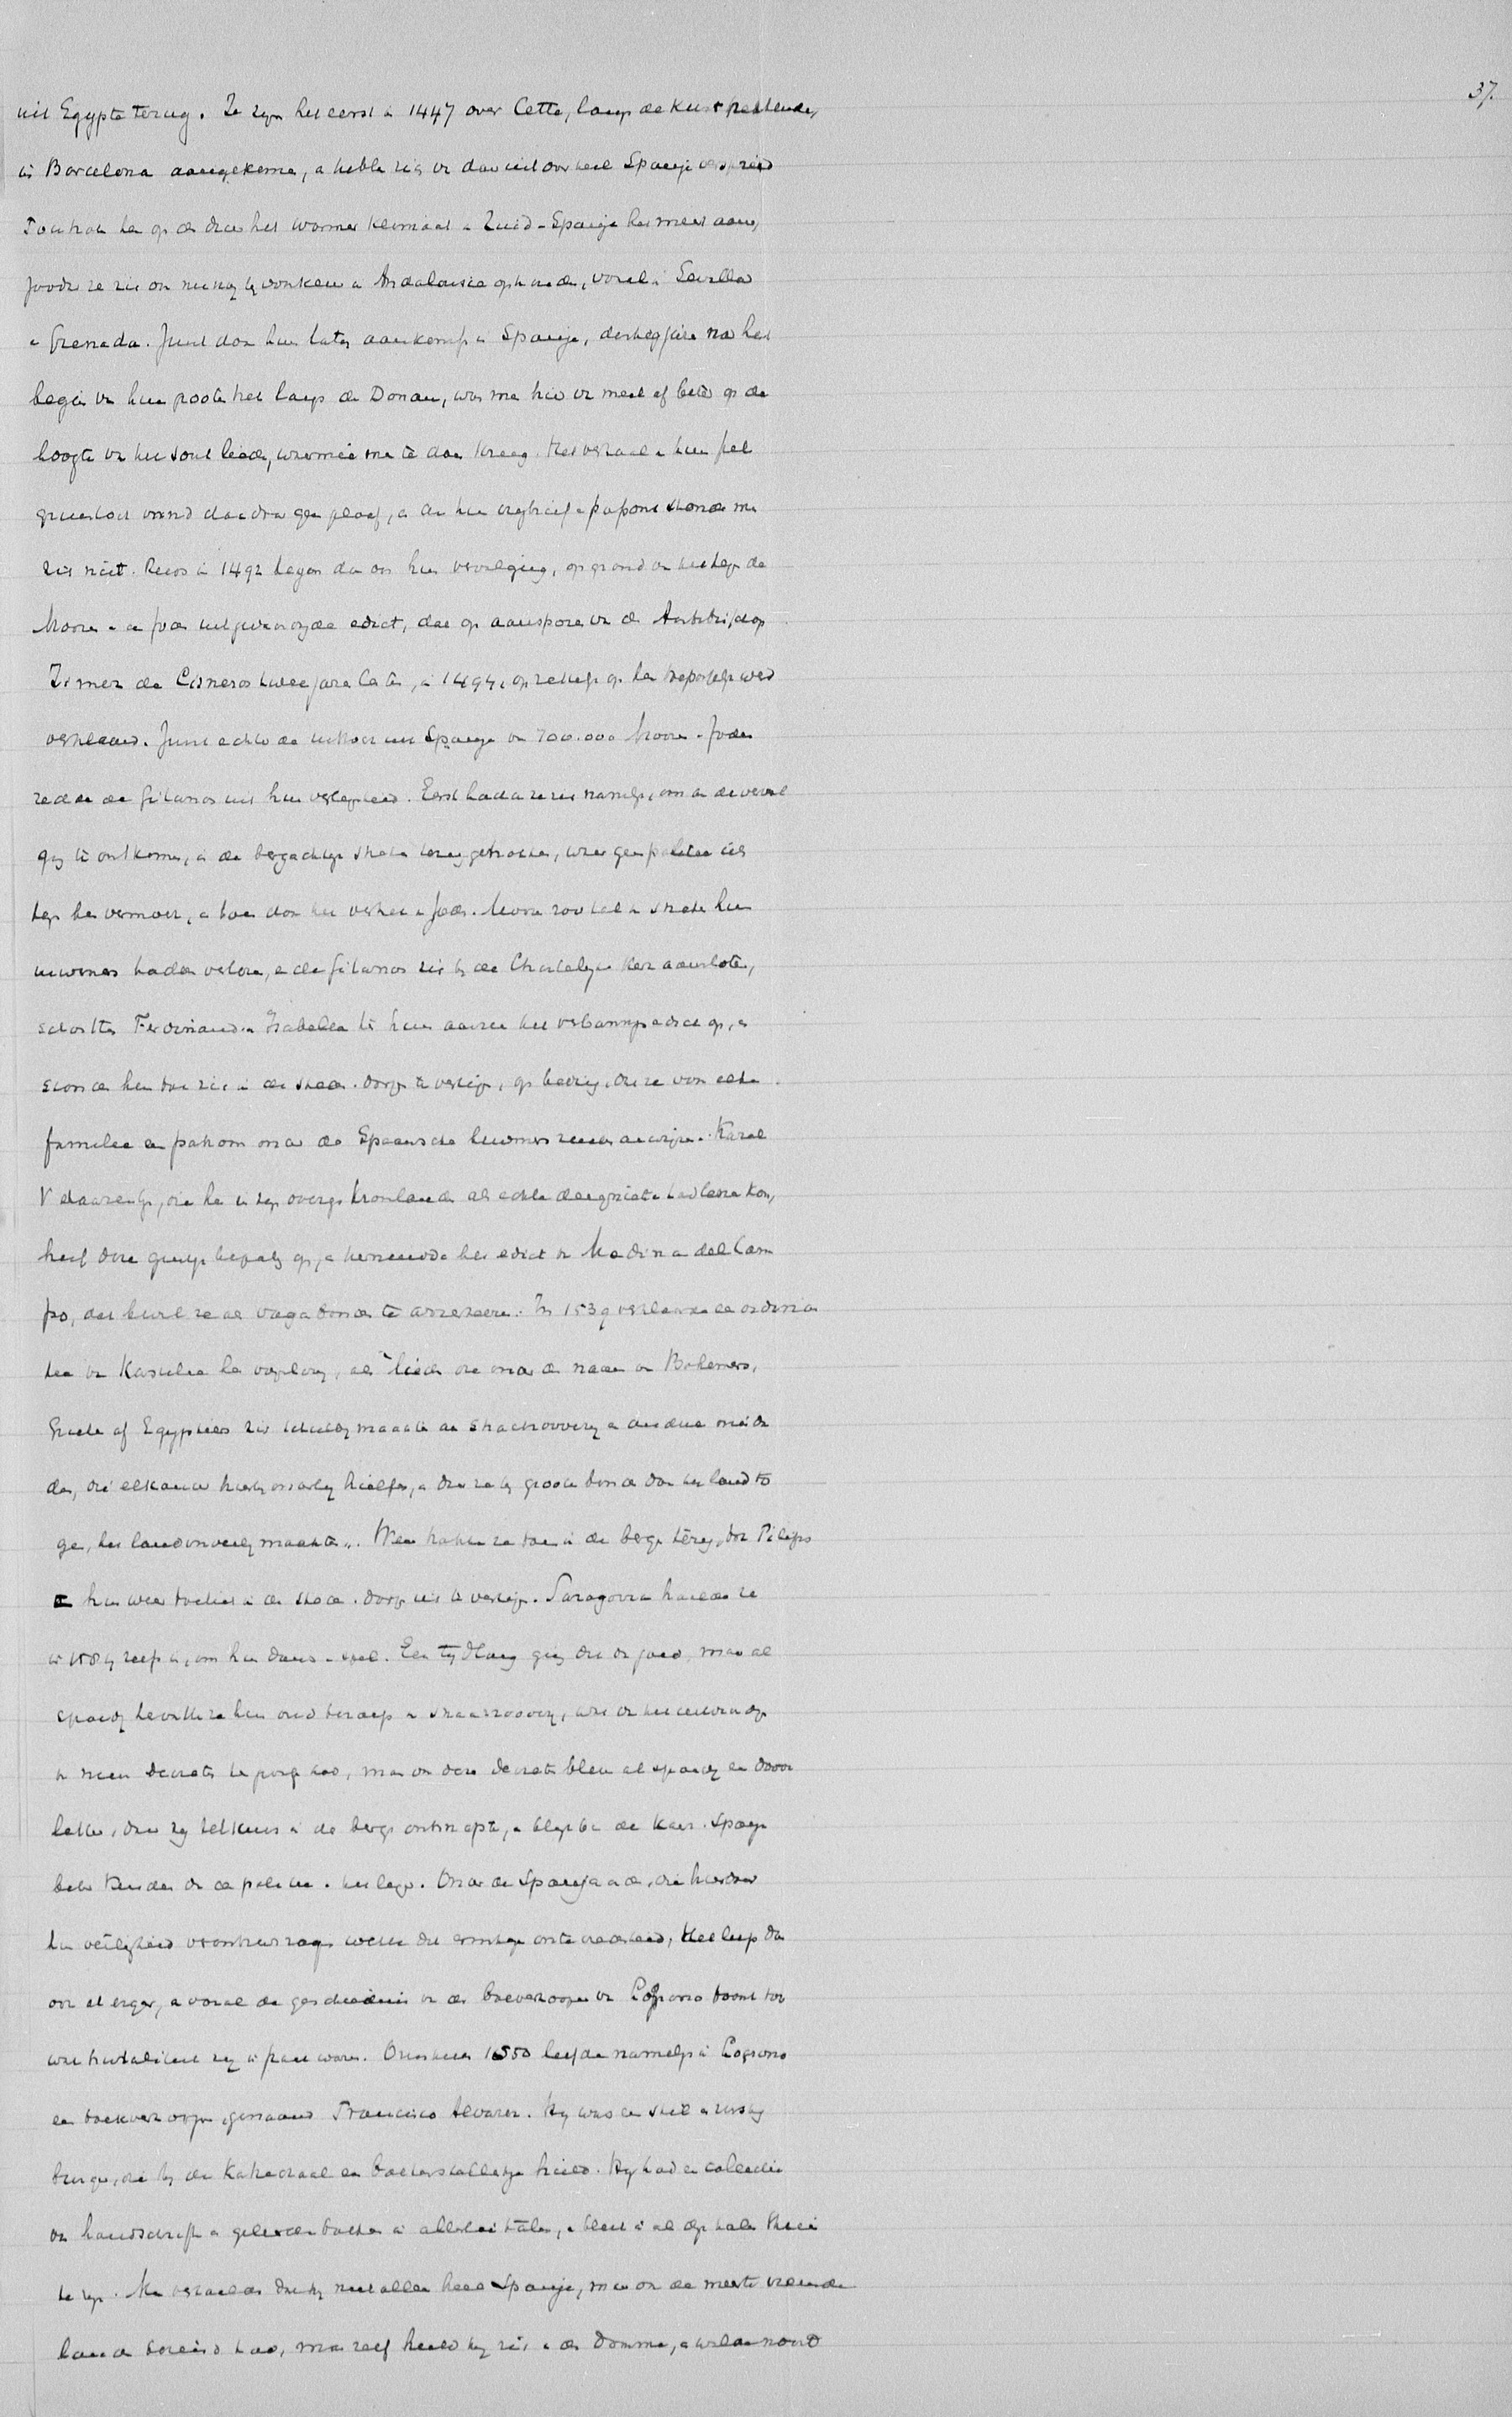 37.
uit Egypte terug. Ze zyn het eerst in 1447 over Cette, langs de kust trekkende,
in Barcelona aangekomen, en hebben zich van daar uit over heel Spanje verspreid
Toch trok hen op den duur het warmer klimaat in Zuid-Spanje het meest aan,
zoodat ze zich ook nu nog by voorkeur in Andalousie ophouden, vooral in Sevilla
en Grenada. Juist door hun later aankomst in Spanje, dertig jaren na het
begin van hun grooten trek langs de Donau, was men hier van meet af beter op de
hoogte van het soort lieden, waarmee men te doen kreeg. Het verhaal van hun
vond daardoor geen geloof, en aan hun vrybrief en paspoort stoorde men
zich niet. Reeds in 1492 begon dan ook hun vervolging, op grond van het tegen de
Mooren en de Joden uitgevaardigde edict, dat op aansporen van den Aartsbisschop
Ximenez de Cisneros twee jaren later, in 1494, opzettelyk op hen toepasselyk werd
verklaard. Juist echter de uittocht uit Spanje van 700.000 Mooren en Joden
redde de Gitanos uit hun verlegenheid. Eerst hadden ze zich namelyk, om aan de vervol
ging te ontkomen, in de bergachtige streken teruggetrokken, waar geen politie iets
tegen hen vermocht, en toen door het vertrek van Joden en Mooren zoo tal van streken hun
inwoners hadden verloren, en de Gitanos zich by de Christelyke Kerk aansloten,
schortten Ferdinand en Isabella te hunnen aanzien het verbanningsedict op, en
stonden hun toe zich in de steden en dorpen te vestigen, op beding, dat ze voor elke
familie een patroon onder de Spaansche inwoners zouden aanwyzen. Karel
V daarentegen, die hen in zyn overige kroonlanden als echte deugnieten had leeren kennen,
hief deze gunstige bepaling op, en hernieuwde het edict van Medina del Cam
po, dat beval ze als vagabonden te arresteeren. In 1539 verklaarde de ordonnan
tie van Kastilie hen vogelvry, als "lieden die onder den naam van Bohemers,
Grieken of Egyptiers zich schuldig maakten aan straatroovery en andere misda
den, die elkander hierby onderling hielpen, en die ze by groote benden door het land to
gen, het land onveilig maakten". Weer trokken ze toen in de bergen terug, tot Philips
II hun weer toeliet in de steden en dorpen zich te vestigen. Saragossa haalde ze
in 1584 zelfs in, om hun dans en spel. Een tydlang ging dit dan goed, maar al
spoedig hervatten ze hun oud beroep van straatroovery, wat dan het uitvaardigen
van nieuwe decreten ten gevolg had, maar ook deze decreten bleven al spoedig een doode
letter, daar zy telkens in de bergen ontsnapten, en blykbaar de kaart van Spanje
beter kenden dan de politie en het leger. Onder de Spanjaarden, die hierdoor
hun veiligheid verontrust zagen wekte dit ernstige ontevredenheid, Het liep dan
ook al erger, en vooral de geschiedenis van den boekverkooper van Logrono toont tot
wat brutaliteit zy in staat waren. Omstreeks 1550 leefde namelyk in Logrono
een boekverkooper, genaamd Francisco Alvarez. Hy was een stil en rustig
burger, die by de Kathedraal een boekenstalletje hield. Hy had een collectie
van handschriften en geleerde boeken in allerlei talen, en bleek in al die talen thuis
te zyn. Men verhaalde dat hy niet alleen heel Spanje, maar ook de meeste vreemde
landen bereisd had, maar zelf hield hy zich van den domme, en wilde nooit